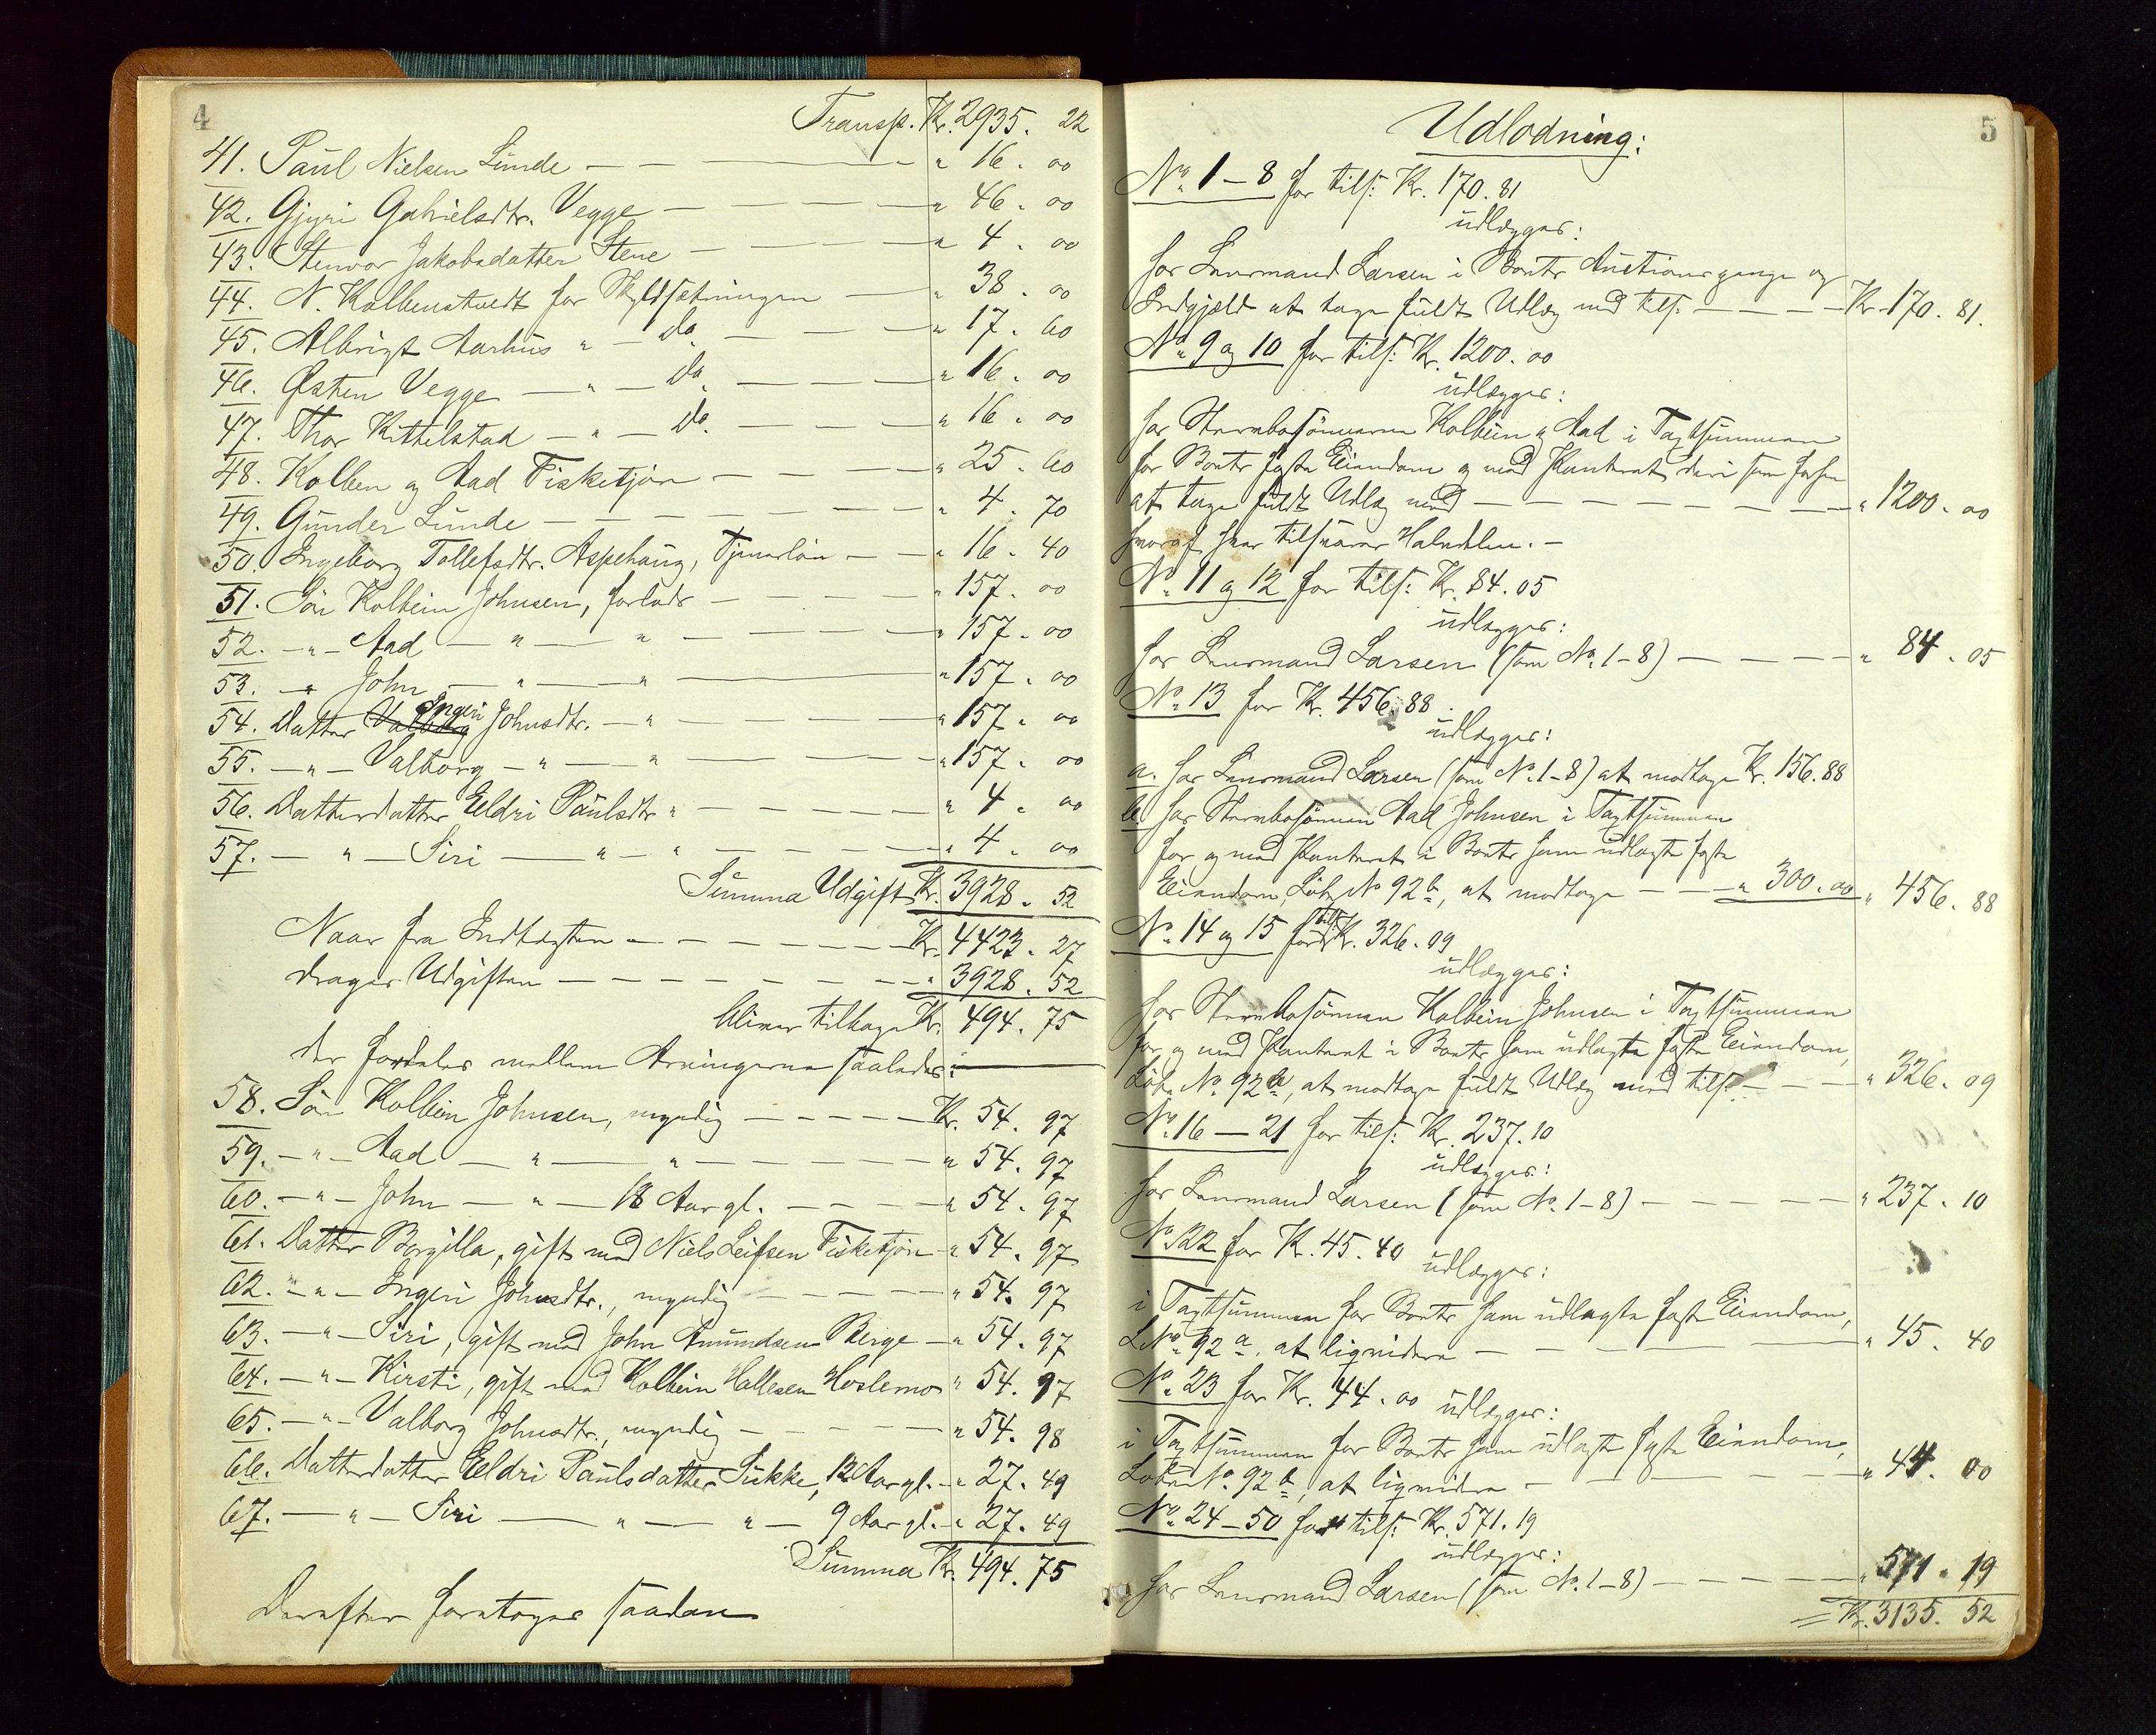 4
Transp. Kr. 2935. 22
41. Paul Nielsen Lunde — — — " 16. 00
42. Gjyri Gabrielsdtr. Vegge — — — " 46. 00
43. Stenvor Jakobsdatter Stene — — — " 4. 00
44. N. Kolbenstvedt for Skyldsætningen — " 38. 00
45. Albrigt Aarhus " — Do. — — — " 17. 60
46. Østen Vegge — " — Do. — — — " 16. 00
47. Thor Kittelstad — " — Do. — — — " 16. 00
48. Kolben og Aad Fisketjøn — — — " 25. 60
49. Gunder Lunde — — — — " 4. 70
50. Ingeborg Tollefsdtr. Aspehaug, Tjenerløn — — " 16. 40
51. Søn Kolbein Johnsen, forlods — — — " 157. 00
52. — " — Aad — " — " — — — " 157. 00
53. — " John — " — " — " 157. 00
54. Datter Valborg Ingeri Johnsdtr. — " — — — " 157. 00
55. — " — Valborg — " — " — — — " 157. 00
56. Datterdatter Eldri Paulsdtr " — — — " 4. 00
57. — " — Siri — " — " — — — " 4. 00
Summa Udgift Kr. 3928. 52
Naar fra Indtægten — — — Kr. 4423. 27
drages Udgiften — — — " 3928. 52
bliver tilbage Kr. 494. 75
der fordeles mellem Arvingerne saaledes:
58. Søn Kolbein Johnsen, myndig — — — Kr. 54. 97
59. — " — Aad — " — " — — — " 54. 97
60. — " — John — " — 18 Aar gl. — — — " 54. 97
61. Datter Borgilla, gift med Niels Leifsen Fisketjøn — " 54. 97
62. — " — Ingeri Johnsdtr., myndig — — — " 54. 97
63. — " — Siri, gift med John Amundsen Berge — " 54. 97
64. — " — Kirsti, gift med Kolbein Hallesen Hoslemo " 54. 97
65. — " — Valborg Johnsdtr., myndig — — — " 54. 98
66. Datterdatter Eldri Paulsdatter Sukke, 12 Aar gl. — " 27. 49
67. — " — Siri — " — " — 9 Aar gl. — " 27. 49
Summa Kr. 494. 75
Derefter foretoges saadan
5
Udlodning:
No. 1 – 8 for tils: Kr. 170. 81
udlægges:
hos Lensmand Larsen i Boets Auktionspenge og
Indgjæld at tage fuldt Udlæg med tils. — — — Kr. 170. 81.
No. 9 og 10 for tils: Kr. 1200. 00
udlægges:
hos Stervbosønnerne Kolbein og Aad i Taxtsummen
for Boets faste Eiendom og med Panteret deri som forhen
at tage fuldt Udlæg med — — — — " 1200. 00
hvoraf hver tilsvarer Halvdelen. —
No. 11 og 12 for tils: Kr. 84. 05
udlægges:
hos Lensmand Larsen (som No. 1 – 8) — — — " 84. 05
No. 13 for Kr. 456. 88.
udlægges:
a. hos Lensmand Larsen (som No. 1 – 8) at modtage Kr. 156. 88
b. hos Stervbosønnen Aad Johnsen i Taxtsummen
for og med Panteret i Boets ham udlagte faste
Eiendom, Løb. No 92 b, at modtage — — " 300. 00 " 456. 88
No. 14 og 15 for tils. Kr. 326. 09
udlægges:
hos Stervbosønnen Kolbein Johnsen i Taxtsummen
for og med Panteret i Boets ham udlagte faste Eiendom,
Løb. No. 92 a, at modtage fuldt Udlæg med tils. — — " 326. 09
No. 16 – 21 for tils: Kr. 237. 10
udlægges:
hos Lensmand Larsen (som No. 1 – 8) — — — " 237. 10
No. 22 for Kr. 45. 40
udlægges:
i Taxtsummen for Boets ham udlagte faste Eiendom,
LNo. 92 a, at liqvidere — — — " 45. 40
No. 23 for Kr. 44. 00
udlægges:
i Taxtsummen for Boets ham udlagte faste Eiendom,
Løb. No. 92 b, at liqvidere — — — " 44. 00
No. 24 – 50 for tils: Kr. 571. 19
udlægges:
hos Lensmand Larsen (som No. 1 – 8) — — — " 571. 19
= Kr. 3135. 52